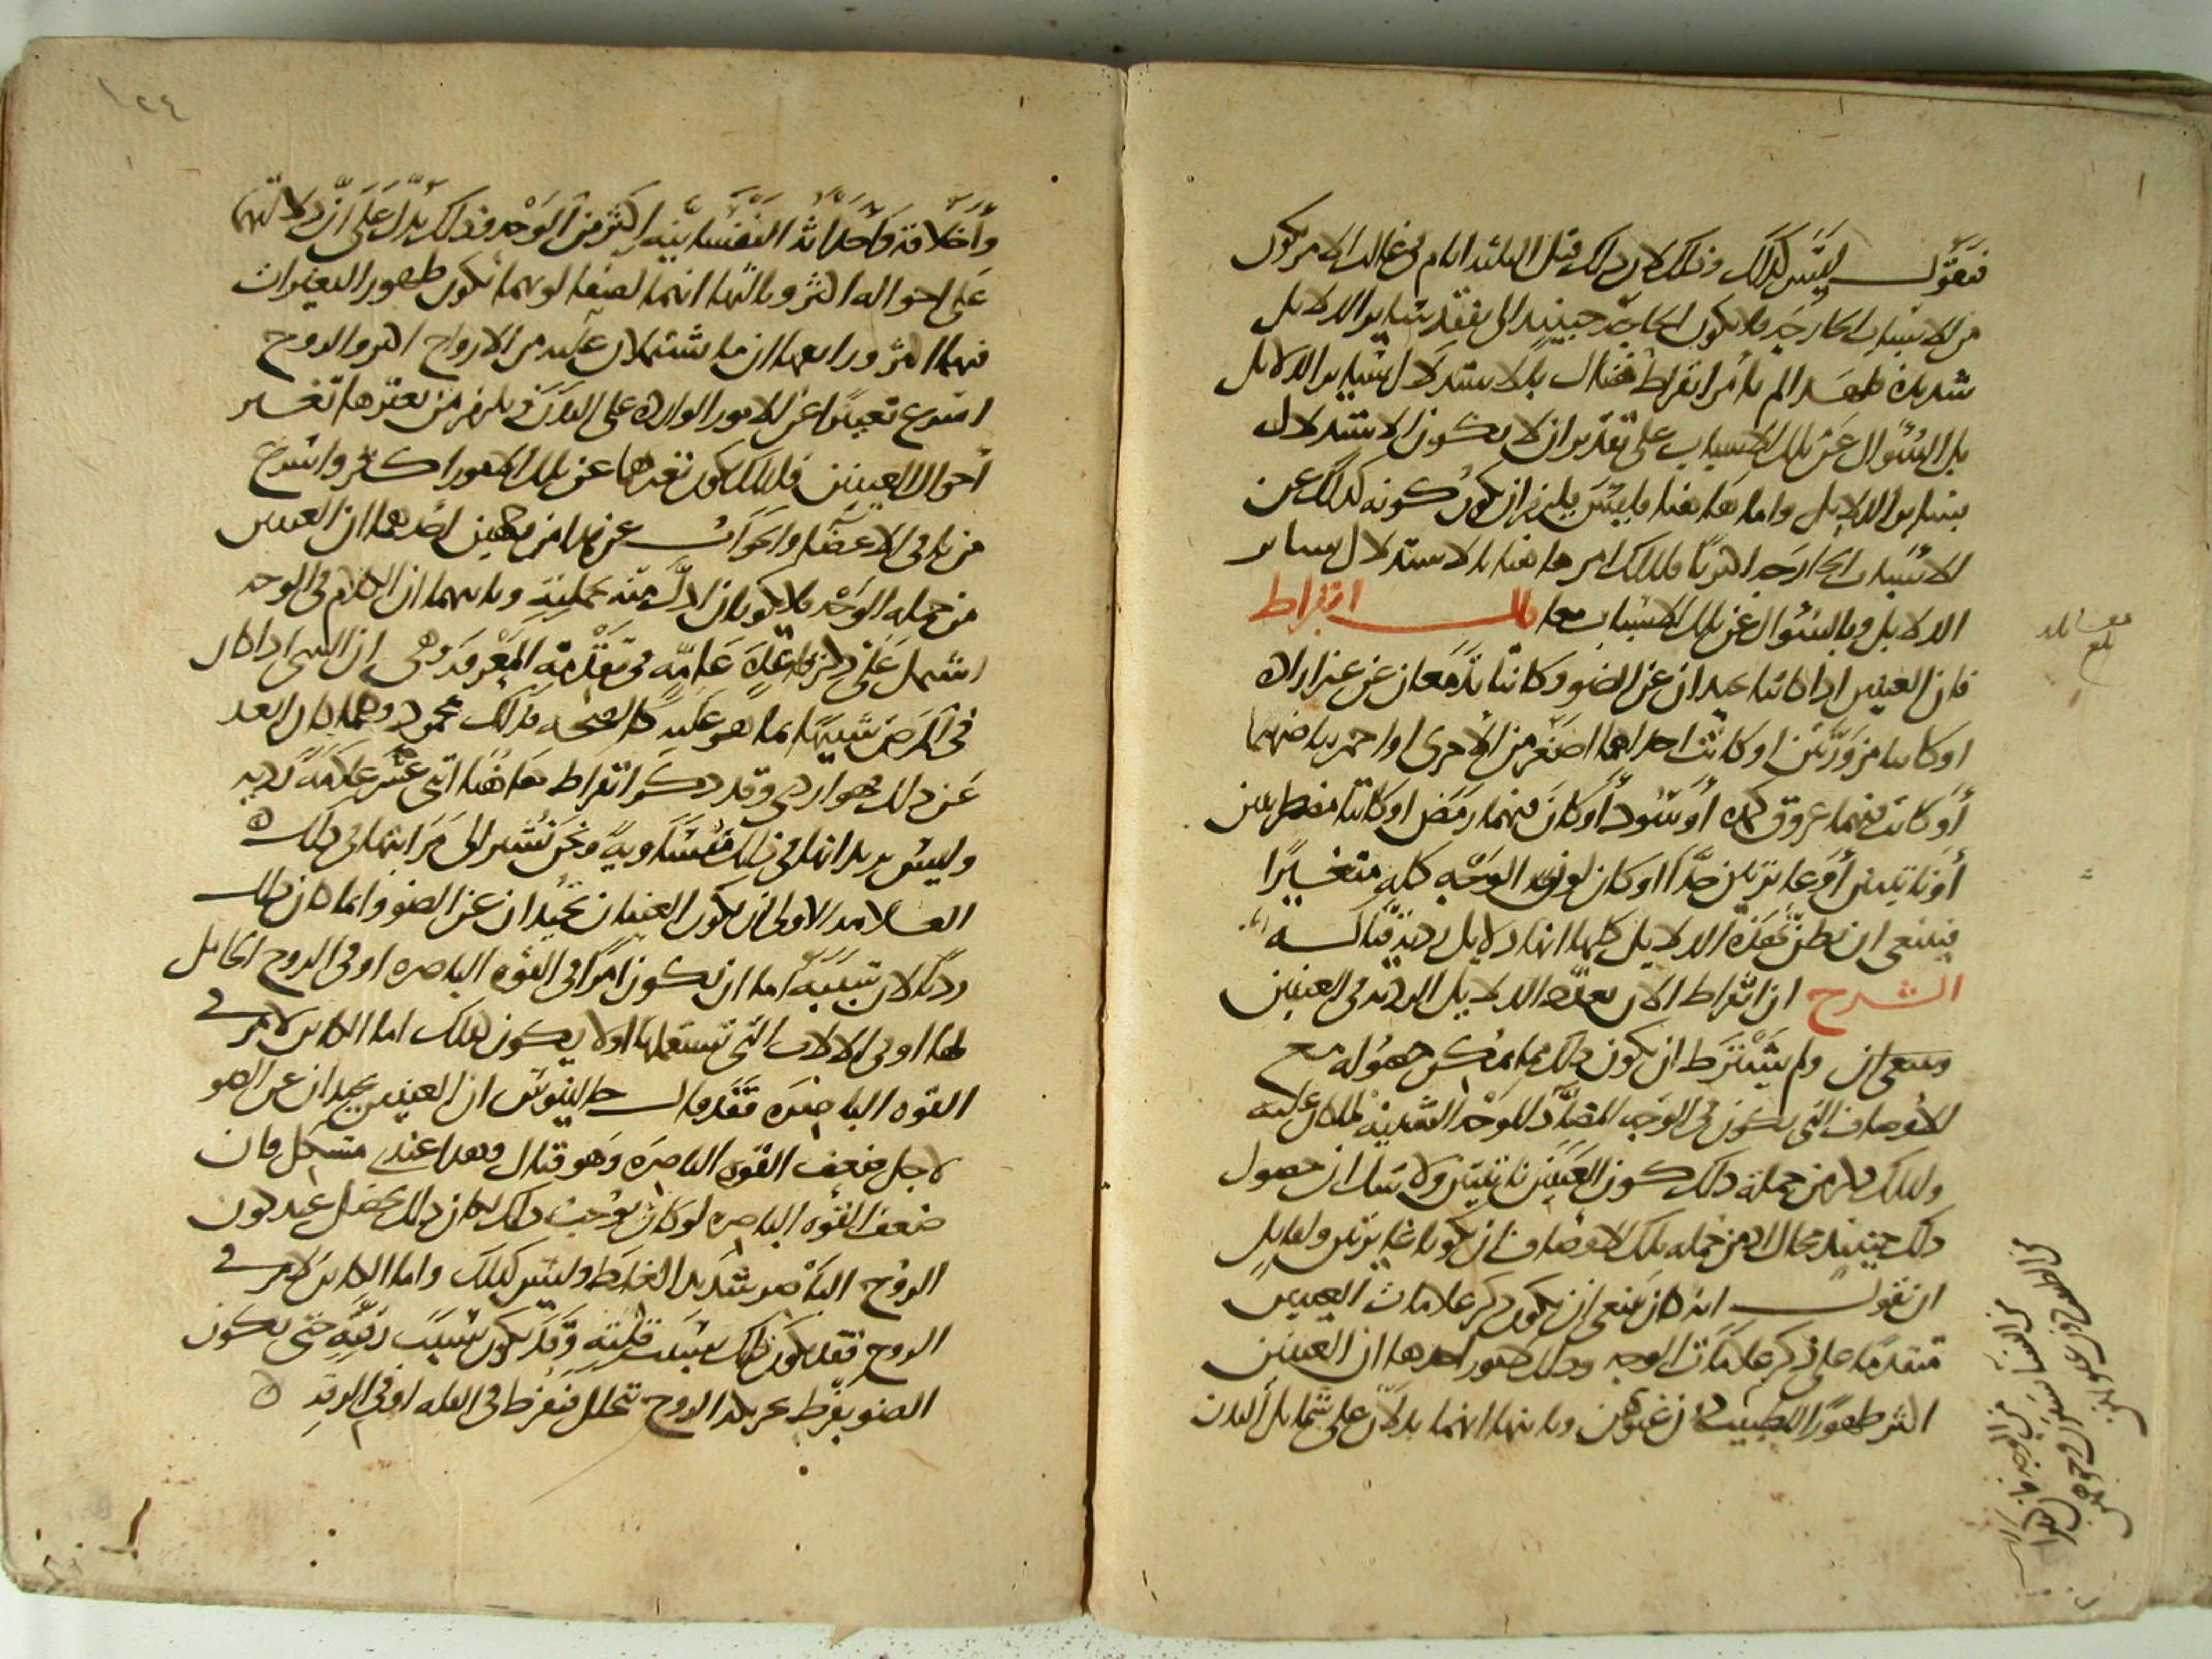 فنقول ليس كذلك وذلك لان ذلك قبل الثلثة ايام في غالب الامر يكون
من الاسباب الخارجة فلا يكون الحاجة حينيذ الى تفقد ساير الدلايل
شديدة فلهذا لم يامر ابقراط هناك بالاستدلال بساير الدلايل
بل السؤال عن تلك الاسباب على تقدير ان لا يكون الاستدلال
بساير الدلايل واما هاهنا فليس يلزم ان يكون كونه كذلك عن
الاسباب الخارجة اكثريا فلذلك امر هاهنا بالاستدلال بساير
الدلايل وبالسؤال عن تلك الاسباب معا قال ابقراط
فان العينين اذا كانتا تحيدان عن الضوء وكانتا تدمعان عن غير ارادة
او كانتا مزورتين او كانت احداهما اصغر من الاخرى او احمر بياضهما
او كانت فيهما عروق كمدة او سود او كان فيهما رمص او كانتا مضطربتين
او ناتيتين او غايرتين جدا او كان لون الوجه كله متغيرا
فينبغي ان تظن بهذه الدلايل كلها انها دلايل ردية قتالة
الشرح ان ابقراط الان يعدد الدلايل الردية في العينين
ولم يشترط ان يكون ذلك مما يمكن حصوله مع
الاوصاف التي يكون في الوجه المضاد للوجه الشبيه بما كان عليه
ولذلك ذكر من جملة ذلك كون العينين ناتيتين ولا شك ان حصول
ذلك حينيذ محال اذ من جملة تلك الاوصاف ان يكونا غايرتين ولقايل
ان يقول انه كان ينبغي ان يكون ذكر علامات العينين
متقدما على ذكر علامات الوجه وذلك لامور احدها ان العينين
اكثر ظهورا للطبيب من غيرهن وثانيها انهما يدلان على شمايل البدن
واخلاقه واحداثه النفسانية اكثر من الوجه وذلك يدل على ان دلالتهما
على احواله اكثر وثالثها انهما لصفا لونهما يكون ظهور التغيرات
فيهما اكثر ورابعها ان ما يشتملان عليه من الارواح اكثر والروح
اسرع تغيرا عن الامور الواردة على البدن ويلزم من تغيرها تغير
احوال العينين فلذلك يكون تغيرهما عن تلك الامور اكثر واسرع
من باقي الاعضا والجواب عن هذا من وجهين احدهما ان العينين
من جملة الوجه فلا يكونان ادل منه بجملته وثانيهما ان الكلام في الوجه
اشتمل على ذكر قاعدة عامة في تقدمة المعرفة وهي ان الشي اذا كان
في المرض شبيها بما هو عليه في الصحة فذلك محمود ومهما كان ابعد
عن ذلك فهو اردى وقد ذكر ابقراط هاهنا اثني عشر علامة ردية
وليس يريد انها في ذلك متساوية ونحن نشير الى مراتبها في ذلك
العلامة الاولى ان يكون العينان تحيدان عن الضوء وانما كان ذلك
رديا لان سببه اما ان يكون امرا في القوة الباصرة او في الروح الحامل
لها او في الالات التي تستعملها او لا يكون كذلك اما الكاين لامر في
القوة الباصرة فقد قال جالينوس ان العينين تحيدان عن الضوء
لاجل ضعف القوة الباصرة وهو قتال وهذا عندي مشكل فان
ضعف القوة الباصرة لو كان يوجب ذلك لكان ذلك يحصل عند كون
الروح الباصر شديد الغلظ وليس كذلك واما الكاين لامر في
الروح فقد يكون ذلك بسبب قلته وقد يكون بسبب رقته حتى يكون
الضوء يفرط تحريكه الروح تحلل فيفرط في القلة او في الرقة